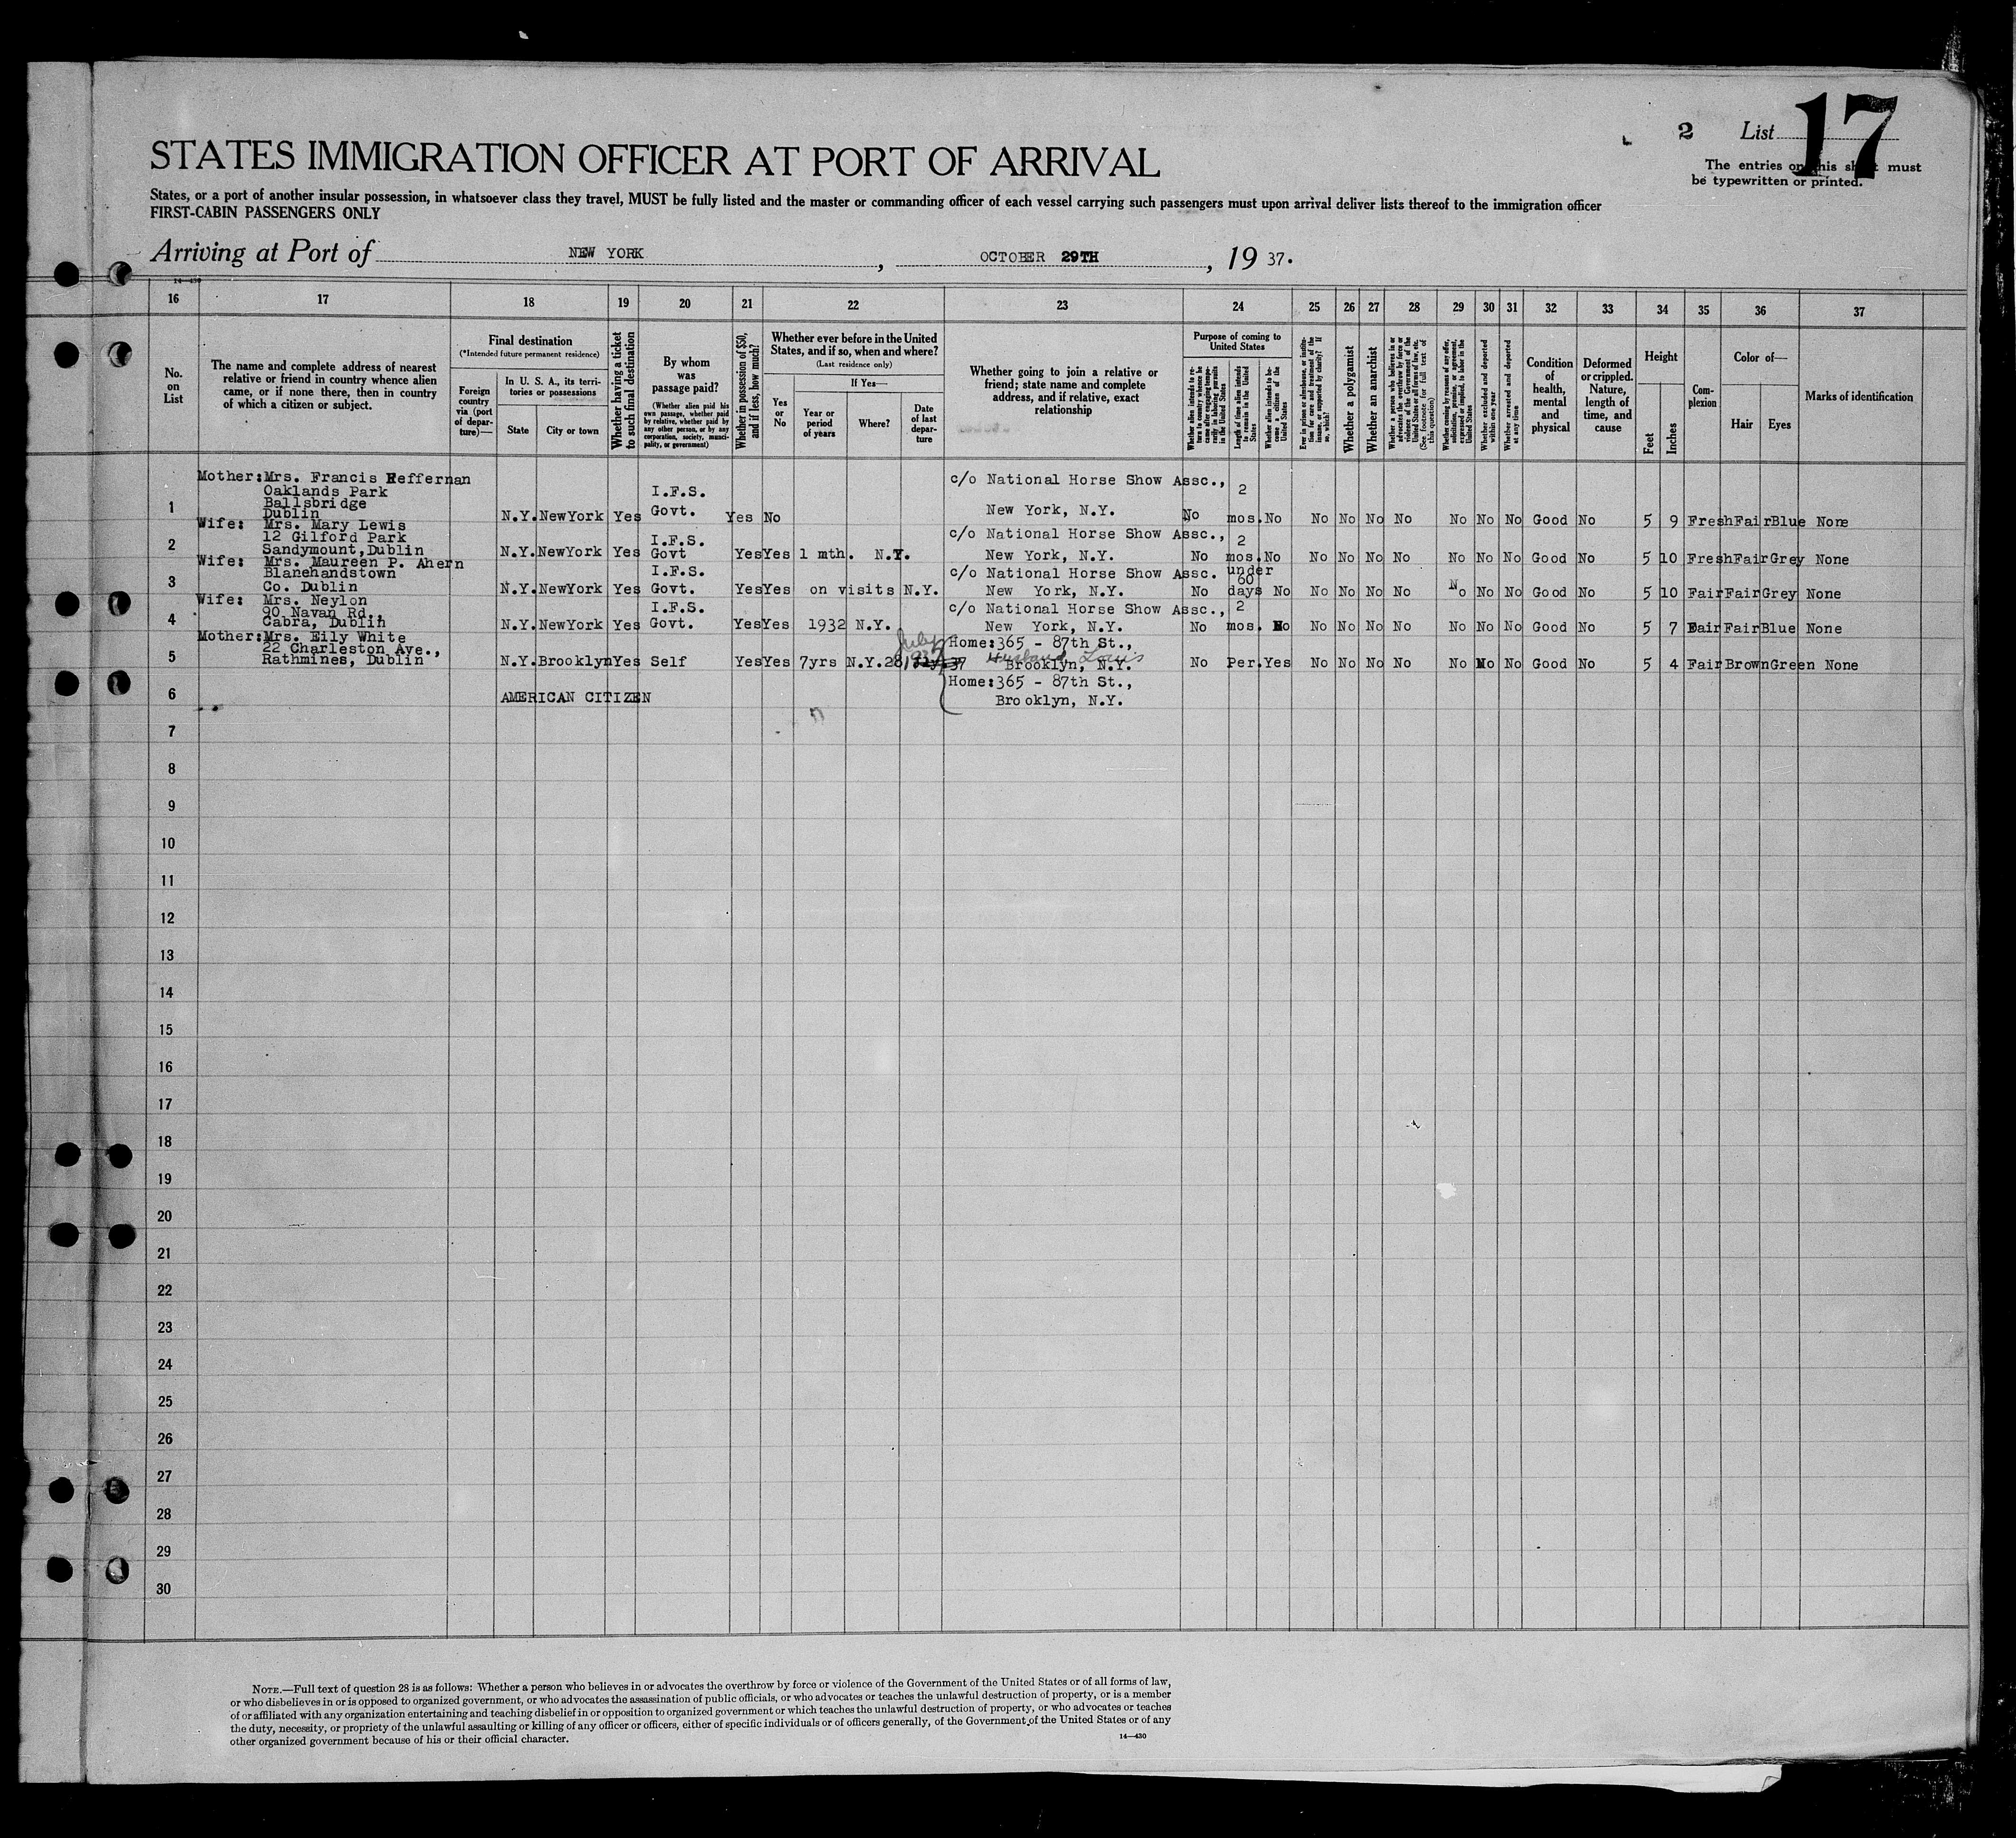 2 List 17
STATES IMMIGRATION OFFICER AT PORT OF ARRIVAL
The entries on this sheet must
be typewritten or printed.
States, or a port of another insular possession, in whatsoever class they travel, MUST be fully listed and the master or commanding officer of each vessel carrying such passengers must upon arrival deliver lists thereof to the immigration officer
FIRST-CABIN PASSENGERS ONLY
Arriving at Port of NEW YORK, OCTOBER 29TH, 19 37.
14—430
16 17 18 19 20 21 22 23 24 25 26 27 28 29 30 31 32 33 34 35 36 37
No.
on
List
The name and complete address of nearest
relative or friend in country whence alien
came, or if none there, then in country
of which a citizen or subject.
Final destination
(*Intended future permanent residence)
Foreign
country
via (port
of depar-
ture)—
In U. S. A., its terri-
tories or possessions
State
City or town
Whether having a ticket
to such final destination
By whom
was
passage paid?
(Whether alien paid his
own passage, whether paid
by relative, whether paid by
any other person, or by any
corporation, society, munici-
pality, or government)
Whether in possession of $50,
and if less, how much?
Whether ever before in the United
States, and if so, when and where?
(Last residence only)
Yes
or
No
If Yes—
Year or
period
of years
Where?
Date
of last
depar-
ture
Whether going to join a relative or
friend; state name and complete
address, and if relative, exact
relationship
Purpose of coming to
United States
Whether alien intends to re-
turn to country whence he
came after engaging tempo-
rarily in laboring pursuits
in the United States
Length of time alien intends
to remain in the United
States
Whether alien intends to be-
come a citizen of the
United States
Ever in prison or almshouse, or institu-
tion for care and treatment of the
insane, or supported by charity? If
so, which?
Whether a polygamist
Whether an anarchist
Whether a person who believes in or
advocates the overthrow by force or
violence of the Government of the
United States or all forms of law, etc.
(See footnote for full text of
this question)
Whether coming by reason of any offer,
solicitation, promise, or agreement,
expressed or implied, to labor in the
United States
Whether excluded and deported
within one year
Whether arrested and deported
at any time
Condition
of
health,
mental
and
physical
Deformed
or crippled.
Nature,
length of
time, and
cause
Height
Feet
Inches
Com-
plexion
Color of—
Hair
Eyes
Marks of identification
Mother: Mrs. Francis Heffernan
Oaklands Park
Ballsbridge
Dublin
1 N.Y. NewYork Yes I.F.S. Govt. Yes No c/o National Horse Show Assc., New York, N.Y. No 2 mos. No No No No No No No No Good No 5 9 Fresh Fair Blue None
Wife: Mrs. Mary Lewis
12 Gilford Park
Sandymount, Dublin
2 N.Y. NewYork Yes I.F.S. Govt Yes Yes 1 mth. N.Y. c/o National Horse Show Assc., New York, N.Y. No 2 mos. No No No No No No No No Good No 5 10 Fresh Fair Grey None
Wife: Mrs. Maureen P. Ahern
Blanehandstown
Co. Dublin
3 N.Y. NewYork Yes I.F.S. Govt. Yes Yes on visits N.Y. c/o National Horse Show Assc. New York, N.Y. No under 60 days No No No No No No No No Good No 5 10 Fair Fair Grey None
Wife: Mrs. Neylon
90 Navan Rd.,
Cabra, Dublin
4 N.Y. NewYork Yes I.F.S. Govt. Yes Yes 1932 N.Y. c/o National Horse Show Assc., New York, N.Y. No 2 mos. No No No No No No No No Good No 5 7 Fair Fair Blue None
Mother: Mrs. Eily White
22 Charleston Ave.,
Rathmines, Dublin
5 N.Y. Brooklyn Yes Self Yes Yes 7yrs N.Y. July 28, 1937 Home: 365 - 87th St., Husband Louis Brooklyn, N.Y. No Per. Yes No No No No No No No Good No 5 4 Fair Brown Green None
6 AMERICAN CITIZEN Home: 365 - 87th St.,
Brooklyn, N.Y.
7
8
9
10
11
12
13
14
15
16
17
18
19
20
21
22
23
24
25
26
27
28
29
30
NOTE.—Full text of question 28 is as follows: Whether a person who believes in or advocates the overthrow by force or violence of the Government of the United States or of all forms of law,
or who disbelieves in or is opposed to organized government, or who advocates the assassination of public officials, or who advocates or teaches the unlawful destruction of property, or is a member
of or affiliated with any organization entertaining and teaching disbelief in or opposition to organized government or which teaches the unlawful destruction of property, or who advocates or teaches
the duty, necessity, or propriety of the unlawful assaulting or killing of any officer or officers, either of specific individuals or of officers generally, of the Government of the United States or of any
other organized government because of his or their official character.
14—430